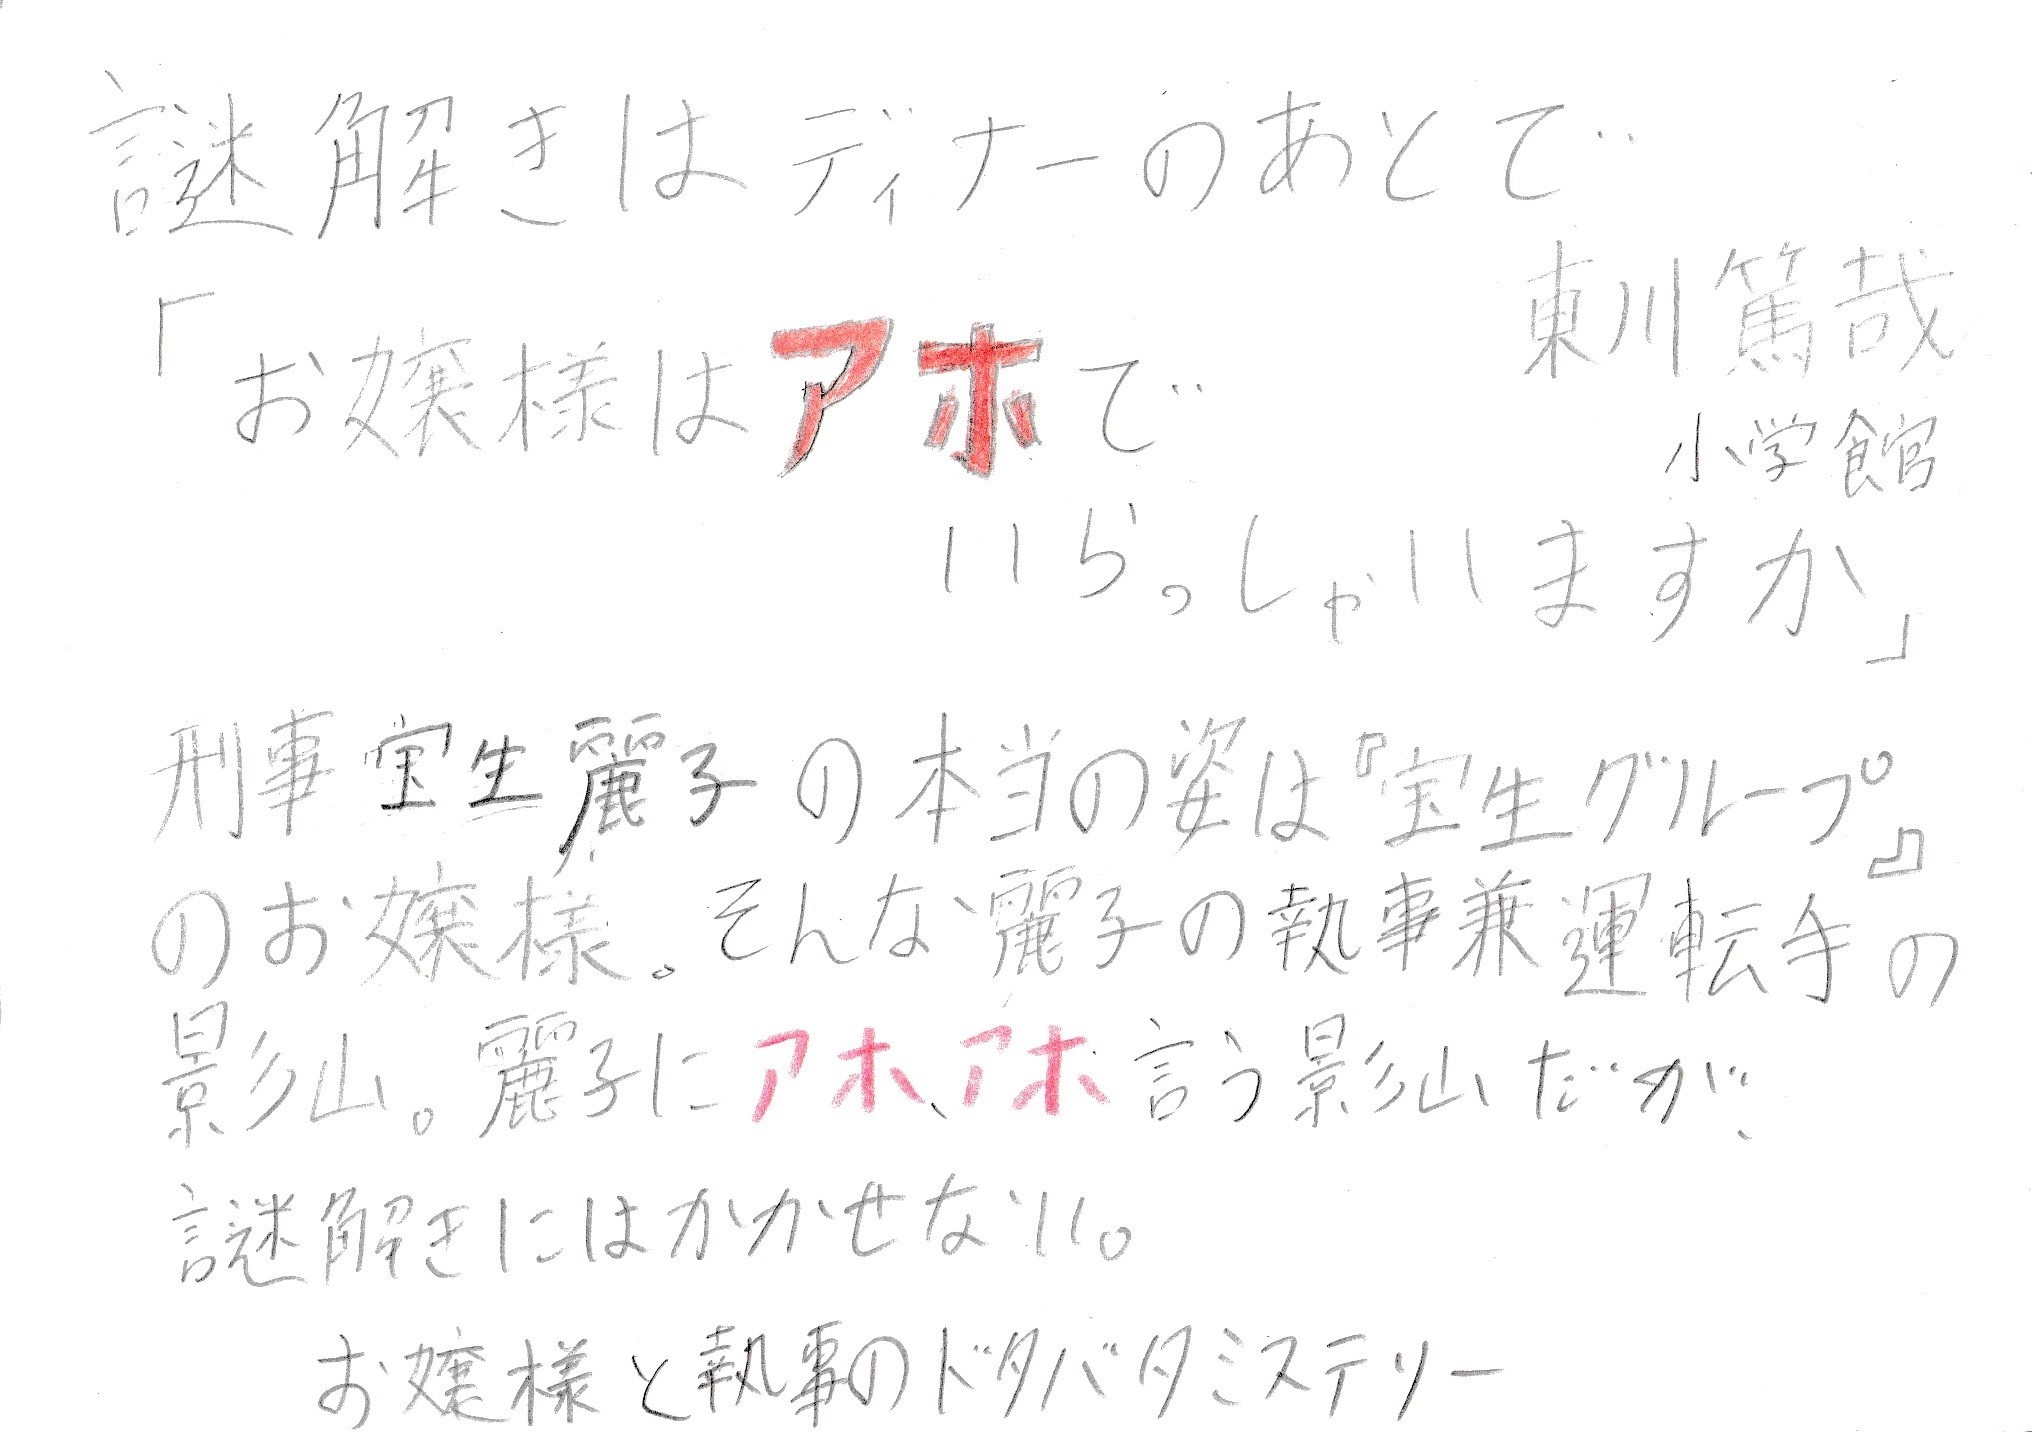 謎解きはディナーのあとで
東川篤哉
小学館
「お嬢様はアホで
いらっしゃいますか」
刑事宝生麗子の本当の姿は『宝生グループ』
のお嬢様。そんな麗子の執事兼運転手の
影山。麗子にアホ、アホ言う影山だが、
謎解きにはかかせない。
お嬢様と執事のドタバタミステリー